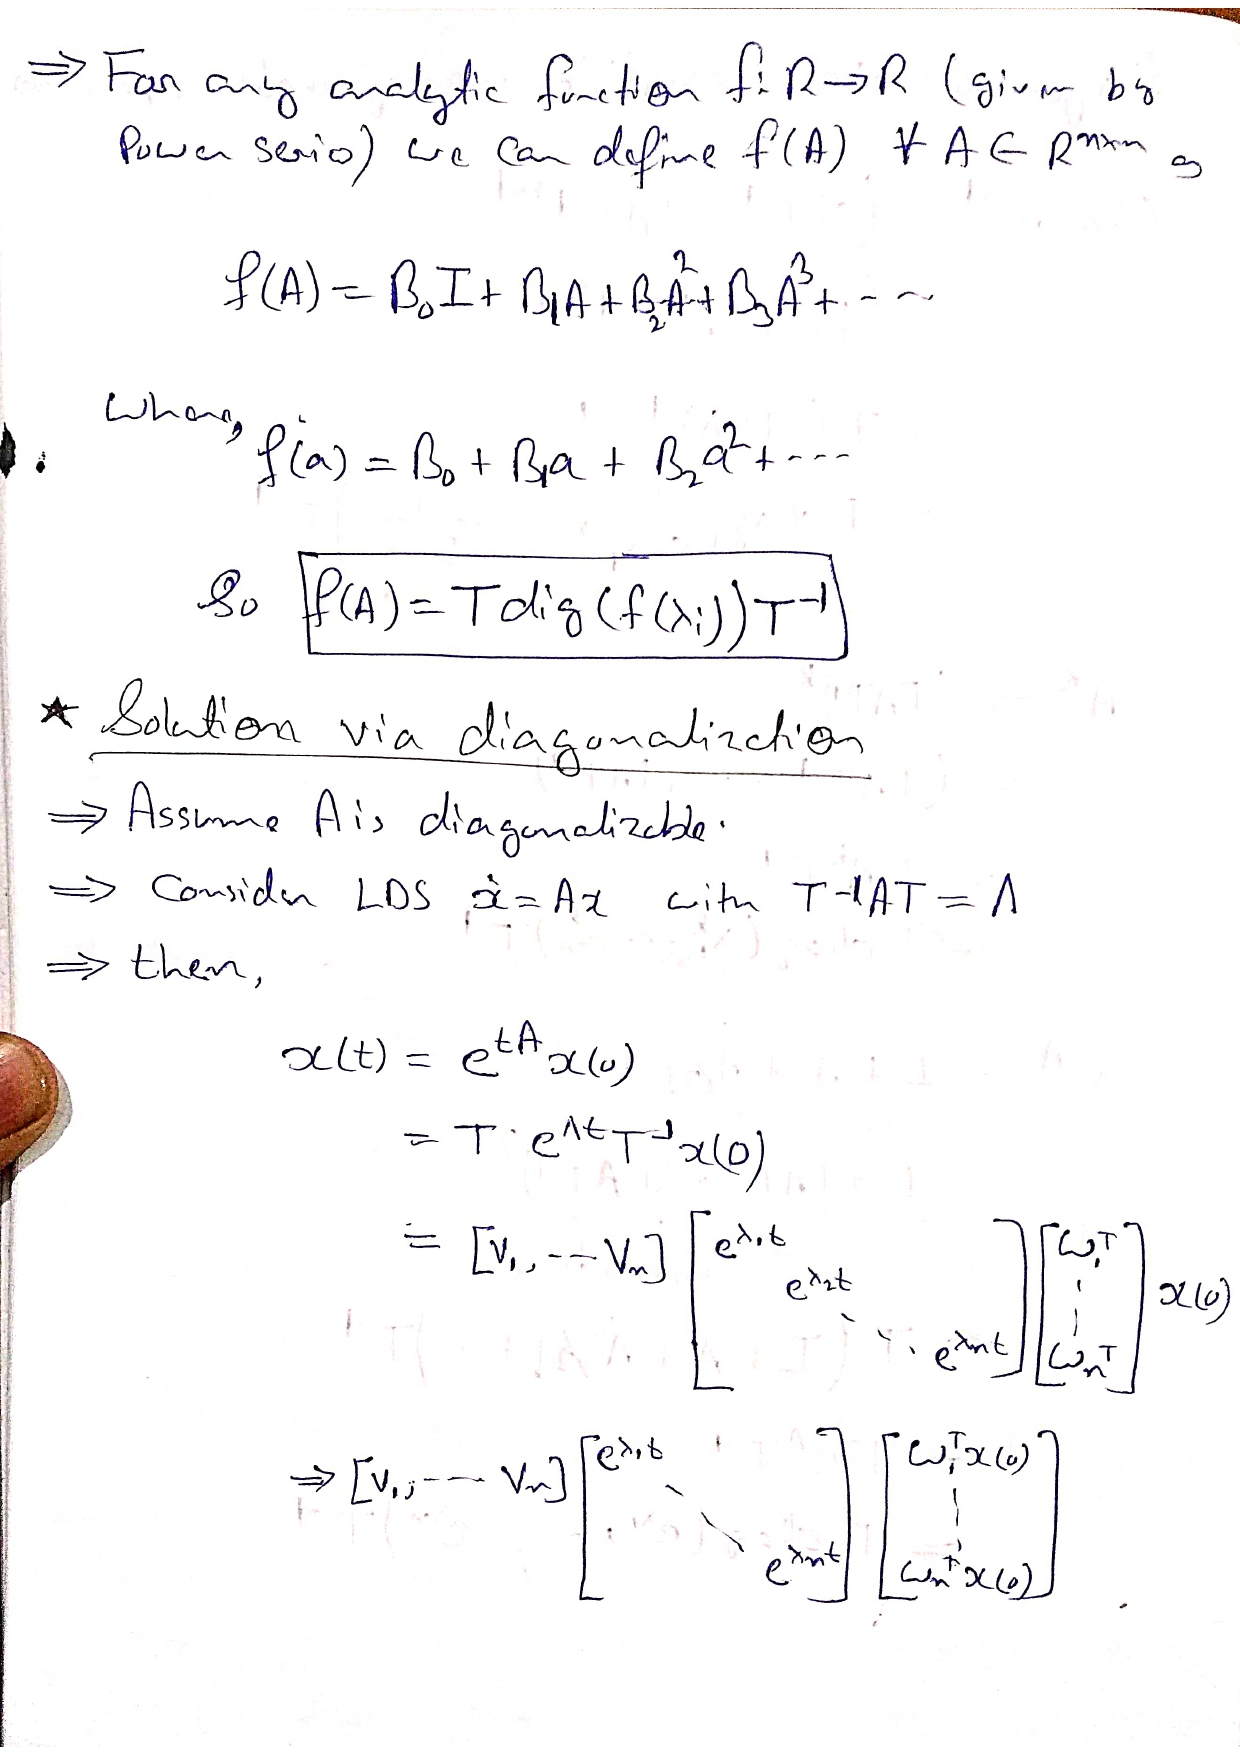 ⇒ For any analytic function f: R→R (given by
Power series) we can define f(A) ∀ A ∈ Rⁿˣⁿ as
f(A) = β₀I + β₁A + β₂A² + β₃A³ + ---
where,
f(a) = β₀ + β₁a + β₂a² + ---
So f(A) = T dig (f(λi)) T⁻¹
★ Solution via diagonalization
⇒ Assume A is diagonalizable.
⇒ Consider LDS ẋ = Ax with T⁻¹AT = Λ
⇒ then,
x(t) = e^{tA} x(0)
= T · e^{Λt} T⁻¹ x(0)
= [V₁, -- Vn] [e^{λ₁t} e^{λ₂t} ⋱ e^{λnt}] [ω₁ᵀ ¦ ωnᵀ] x(0)
⇒ [V₁, --- Vn] [e^{λ₁t} ⋱ e^{λnt}] [ω₁ᵀx(0) ¦ ωnᵀx(0)]